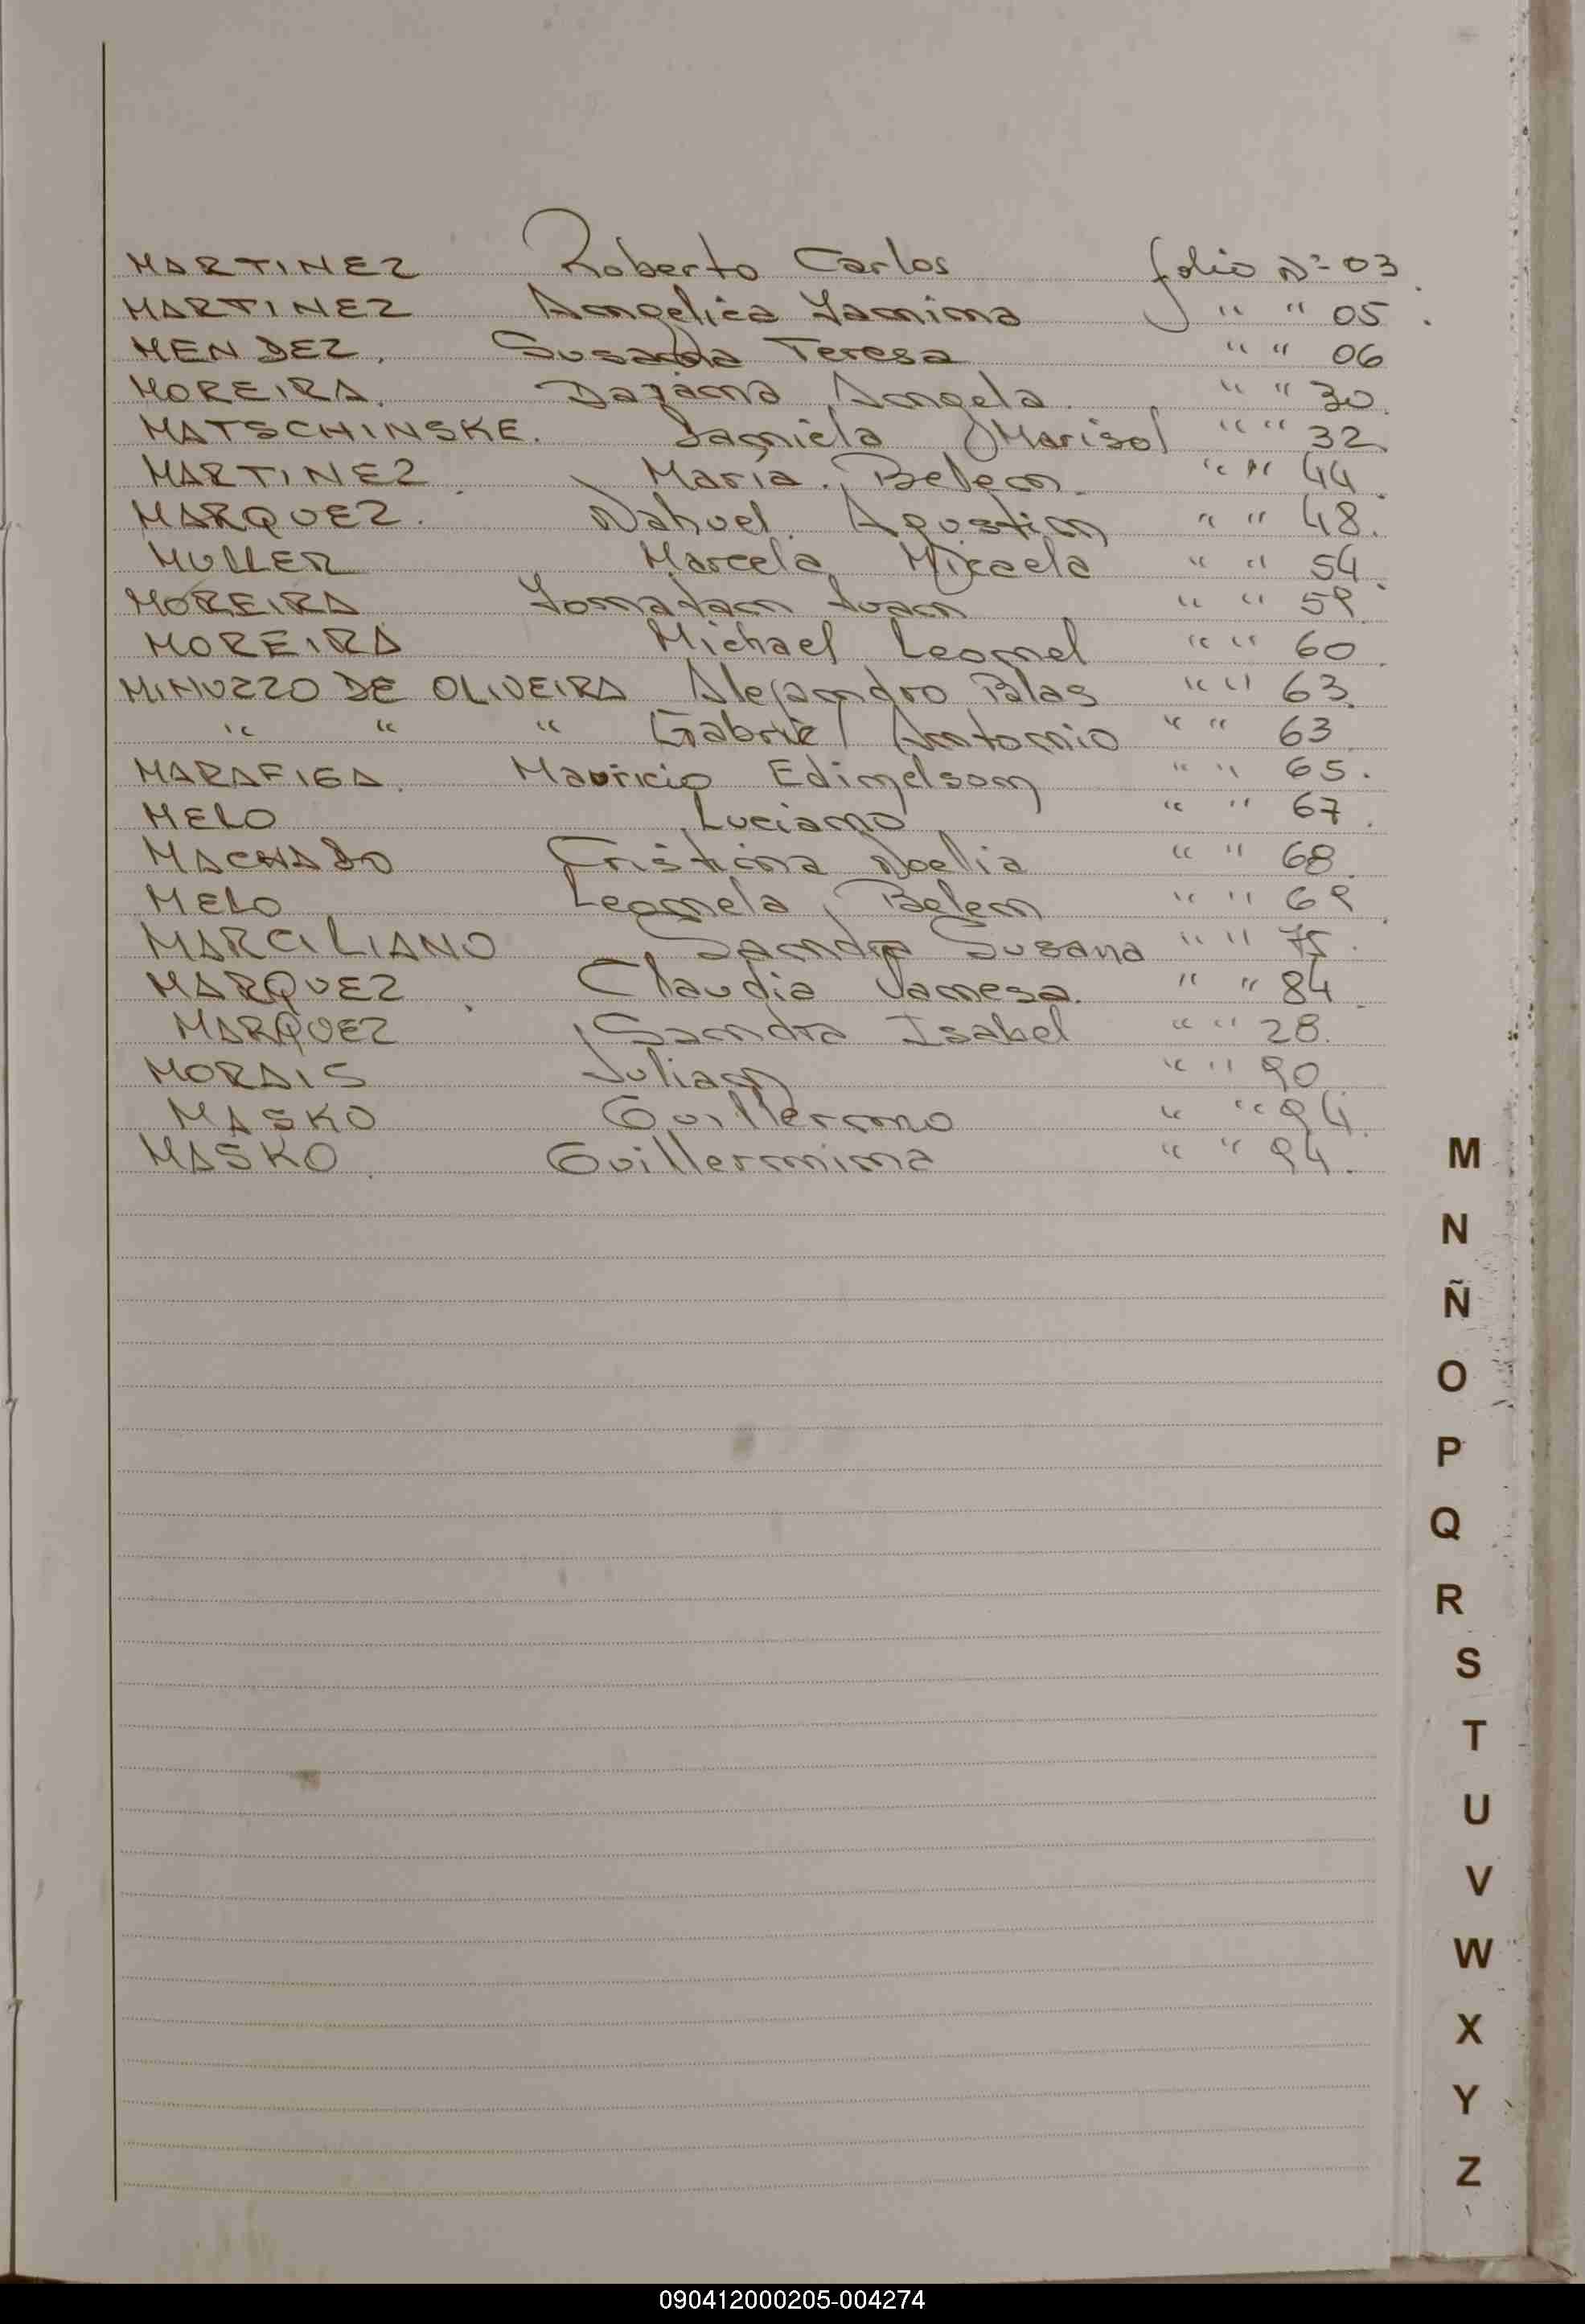 MARTINEZ Roberto Carlos folio Nº 03
MARTINEZ Angelica Yanina " " 05
MENDEZ. Susana Teresa " " 06
MOREIRA. Dayana Angela " " 30
MATSCHINSKE. Daniela Marisol " " 32
MARTINEZ Maria Belen " " 44
MARQUEZ. Nahuel Agustin " " 48.
MULLER Marcela Micaela " " 54
MOREIRA Jonatan Juan " " 59
MOREIRA Michael Leonel " " 60
MINUZZO DE OLIVEIRA Alejandro Blas " " 63
" " " Gabriel Antonio " " 63
MARAFIGA. Mauricio Edinelson " " 65.
MELO Luciano " " 67
MACHADO Cristina Noelia " " 68
MELO Leonela Belen " " 69
MARCILIANO Sandra Susana " " 75
MARQUEZ Claudia Vanesa " " 84
MARQUEZ Sandra Isabel " " 28.
MORAIS Julian " " 90
MASKO Guillermo " " 94
MASKO Guillermina " " 94.
M
N
Ñ
O
P
Q
R
S
T
U
V
W
X
Y
Z
090412000205-004274